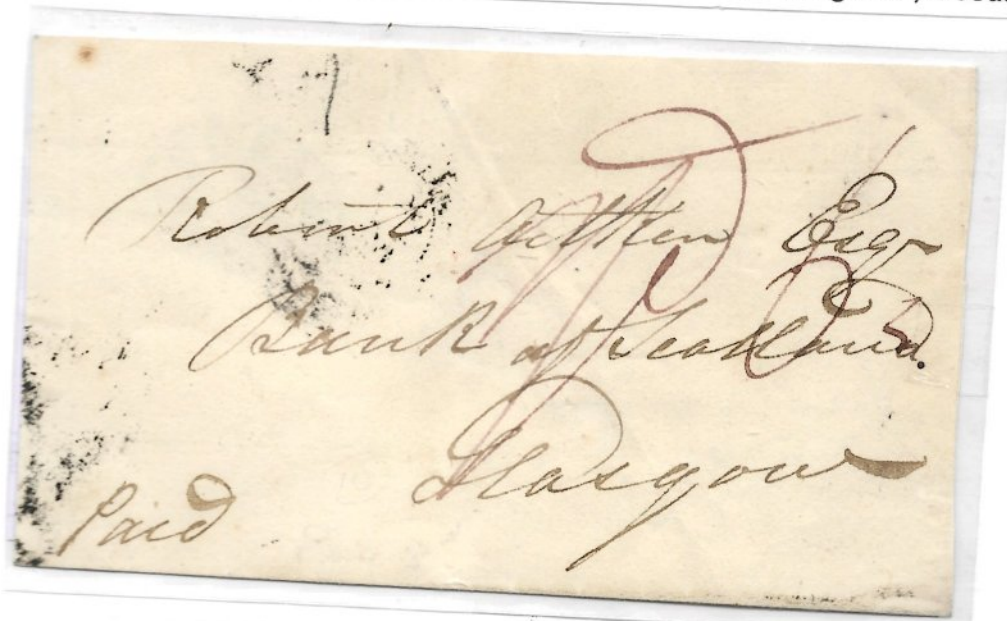 Robert Aitken Esqr
Bank of Scotland.
Glasgow
Paid